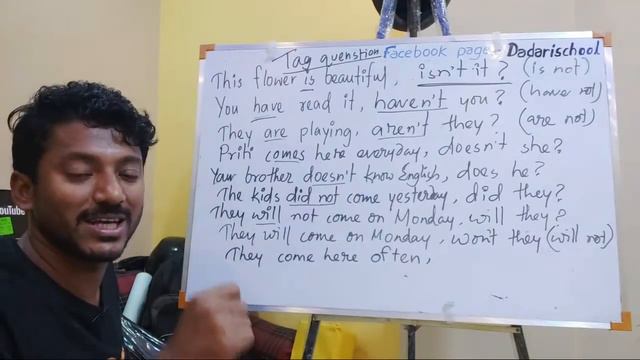 Tag quenstion Facebook page- Dadarischool
This flower is beautiful, isn't it? (is not)
You have read it, haven't you? (have not)
They are playing, aren't they? (are not)
Priti comes here everyday, doesn't she?
Your brother doesn't know English, does he?
The kids did not come yesterday, did they?
They will not come on Monday, will they?
They will come on Monday, won't they (will not)
They come here often,
YouTube